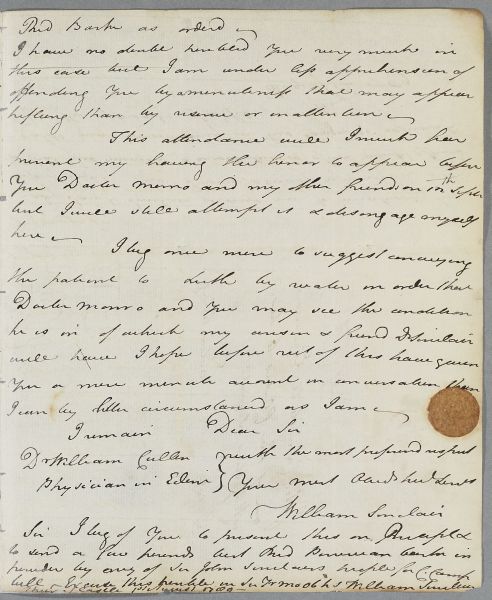 Red Bark as orderd
I have no doubt troubled you very much in
this case but I am under less apprehension of
offending you by a minuteness that may appear
trifling than by reserve or inattention
This attendance will I much fear
prevent my having the honor to appear before
you Doctor Monro and my other friends on 1st Septr
but I will still attempt it & disengage myself
here
I beg once more to suggest conveying
the patient to Leith by water in order that
Doctor Monro and you may see the condition
he is in of which my cousin & friend Dr Sinclair
will have I hope before rect of this have given
you a more minute account in conversation than
I can by letter circumstanced as I am
I remain Dear Sir
Dr William Cullen with the most profound respect
Physician in Edinr your most Obedt hule Servt
William Sinclair
Sir I beg of you to present this on Receipt &
to send a few pounds best Red Peruvian bark in
powder by any of Sir John Sinclairs people
William Sinclair